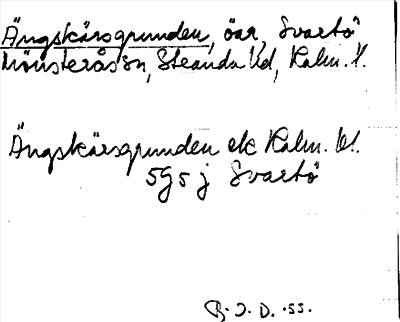 Ängskärsgrunden, öar, Svartö
Mönsterås sn, Stranda hd, Kalm. l.
Ängskärsgrunden ek Kalm. bl.
5g5j Svartö
B. J. D. -53.